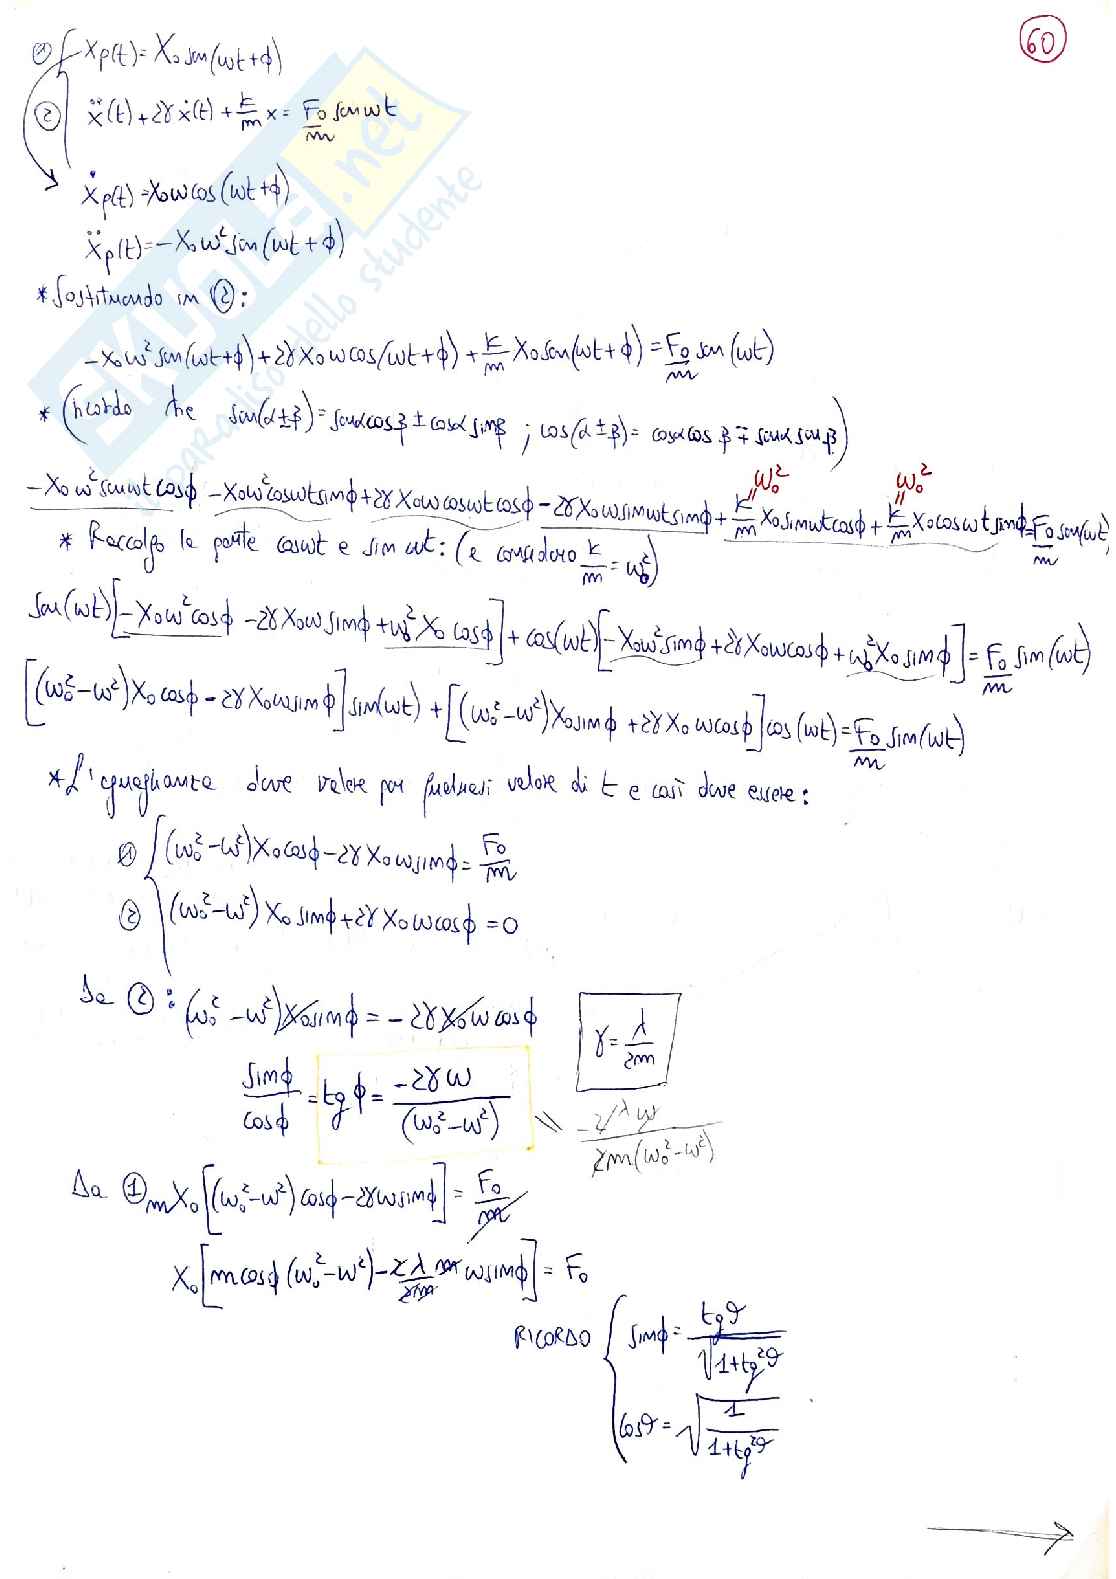 60
① { Xp(t) = X₀ sen(ωt+ϕ)
② ẍ(t) + 2γẋ(t) + k/m x = F₀/m sen ωt
ẋp(t) = X₀ω cos(ωt+ϕ)
ẍp(t) = -X₀ω² sin(ωt+ϕ)
* Sostituendo in ②:
-X₀ω² sin(ωt+ϕ) + 2γX₀ω cos(ωt+ϕ) + k/m X₀ sen(ωt+ϕ) = F₀/m sen(ωt)
* (ricordo che sen(α±β) = senα cosβ ± cosα sinβ ; cos(α±β) = cosα cosβ ∓ senα senβ)
ω₀² ω₀²
-X₀ω² sinωt cosϕ - X₀ω² cosωt sinϕ + 2γX₀ω cosωt cosϕ - 2γX₀ω sinωt sinϕ + k/m X₀ sinωt cosϕ + k/m X₀ cosωt sinϕ = F₀/m sen(ωt)
* Raccolgo la parte cosωt e sin ωt: (e considero k/m = ω₀²)
sen(ωt)[-X₀ω² cosϕ - 2γX₀ω sinϕ + ω₀² X₀ cosϕ] + cos(ωt)[-X₀ω² sinϕ + 2γX₀ω cosϕ + ω₀² X₀ sinϕ] = F₀/m sin(ωt)
[(ω₀²-ω²)X₀ cosϕ - 2γX₀ω sinϕ] sin(ωt) + [(ω₀²-ω²)X₀ sinϕ + 2γX₀ω cosϕ] cos(ωt) = F₀/m sin(ωt)
* L'uguaglianza deve valere per qualsiasi valore di t e così deve essere:
① { (ω₀²-ω²)X₀ cosϕ - 2γX₀ω sinϕ = F₀/m
② (ω₀²-ω²)X₀ sinϕ + 2γX₀ω cosϕ = 0
Da ②: (ω₀²-ω²)X₀ sinϕ = -2γX₀ω cosϕ
γ = λ/2m
sinϕ/cosϕ = tgϕ = -2γω/(ω₀²-ω²)
-2λω/2m(ω₀²-ω²)
Da ① mX₀[(ω₀²-ω²)cosϕ - 2γω sinϕ] = F₀/m
X₀[m cosϕ(ω₀²-ω²) - 2λ/2m m ω sinϕ] = F₀
RICORDO { sinϕ = tgϑ/√1+tg²ϑ
cosϑ = √1/1+tg²ϑ
SKUOLA.net
il paradiso dello studente